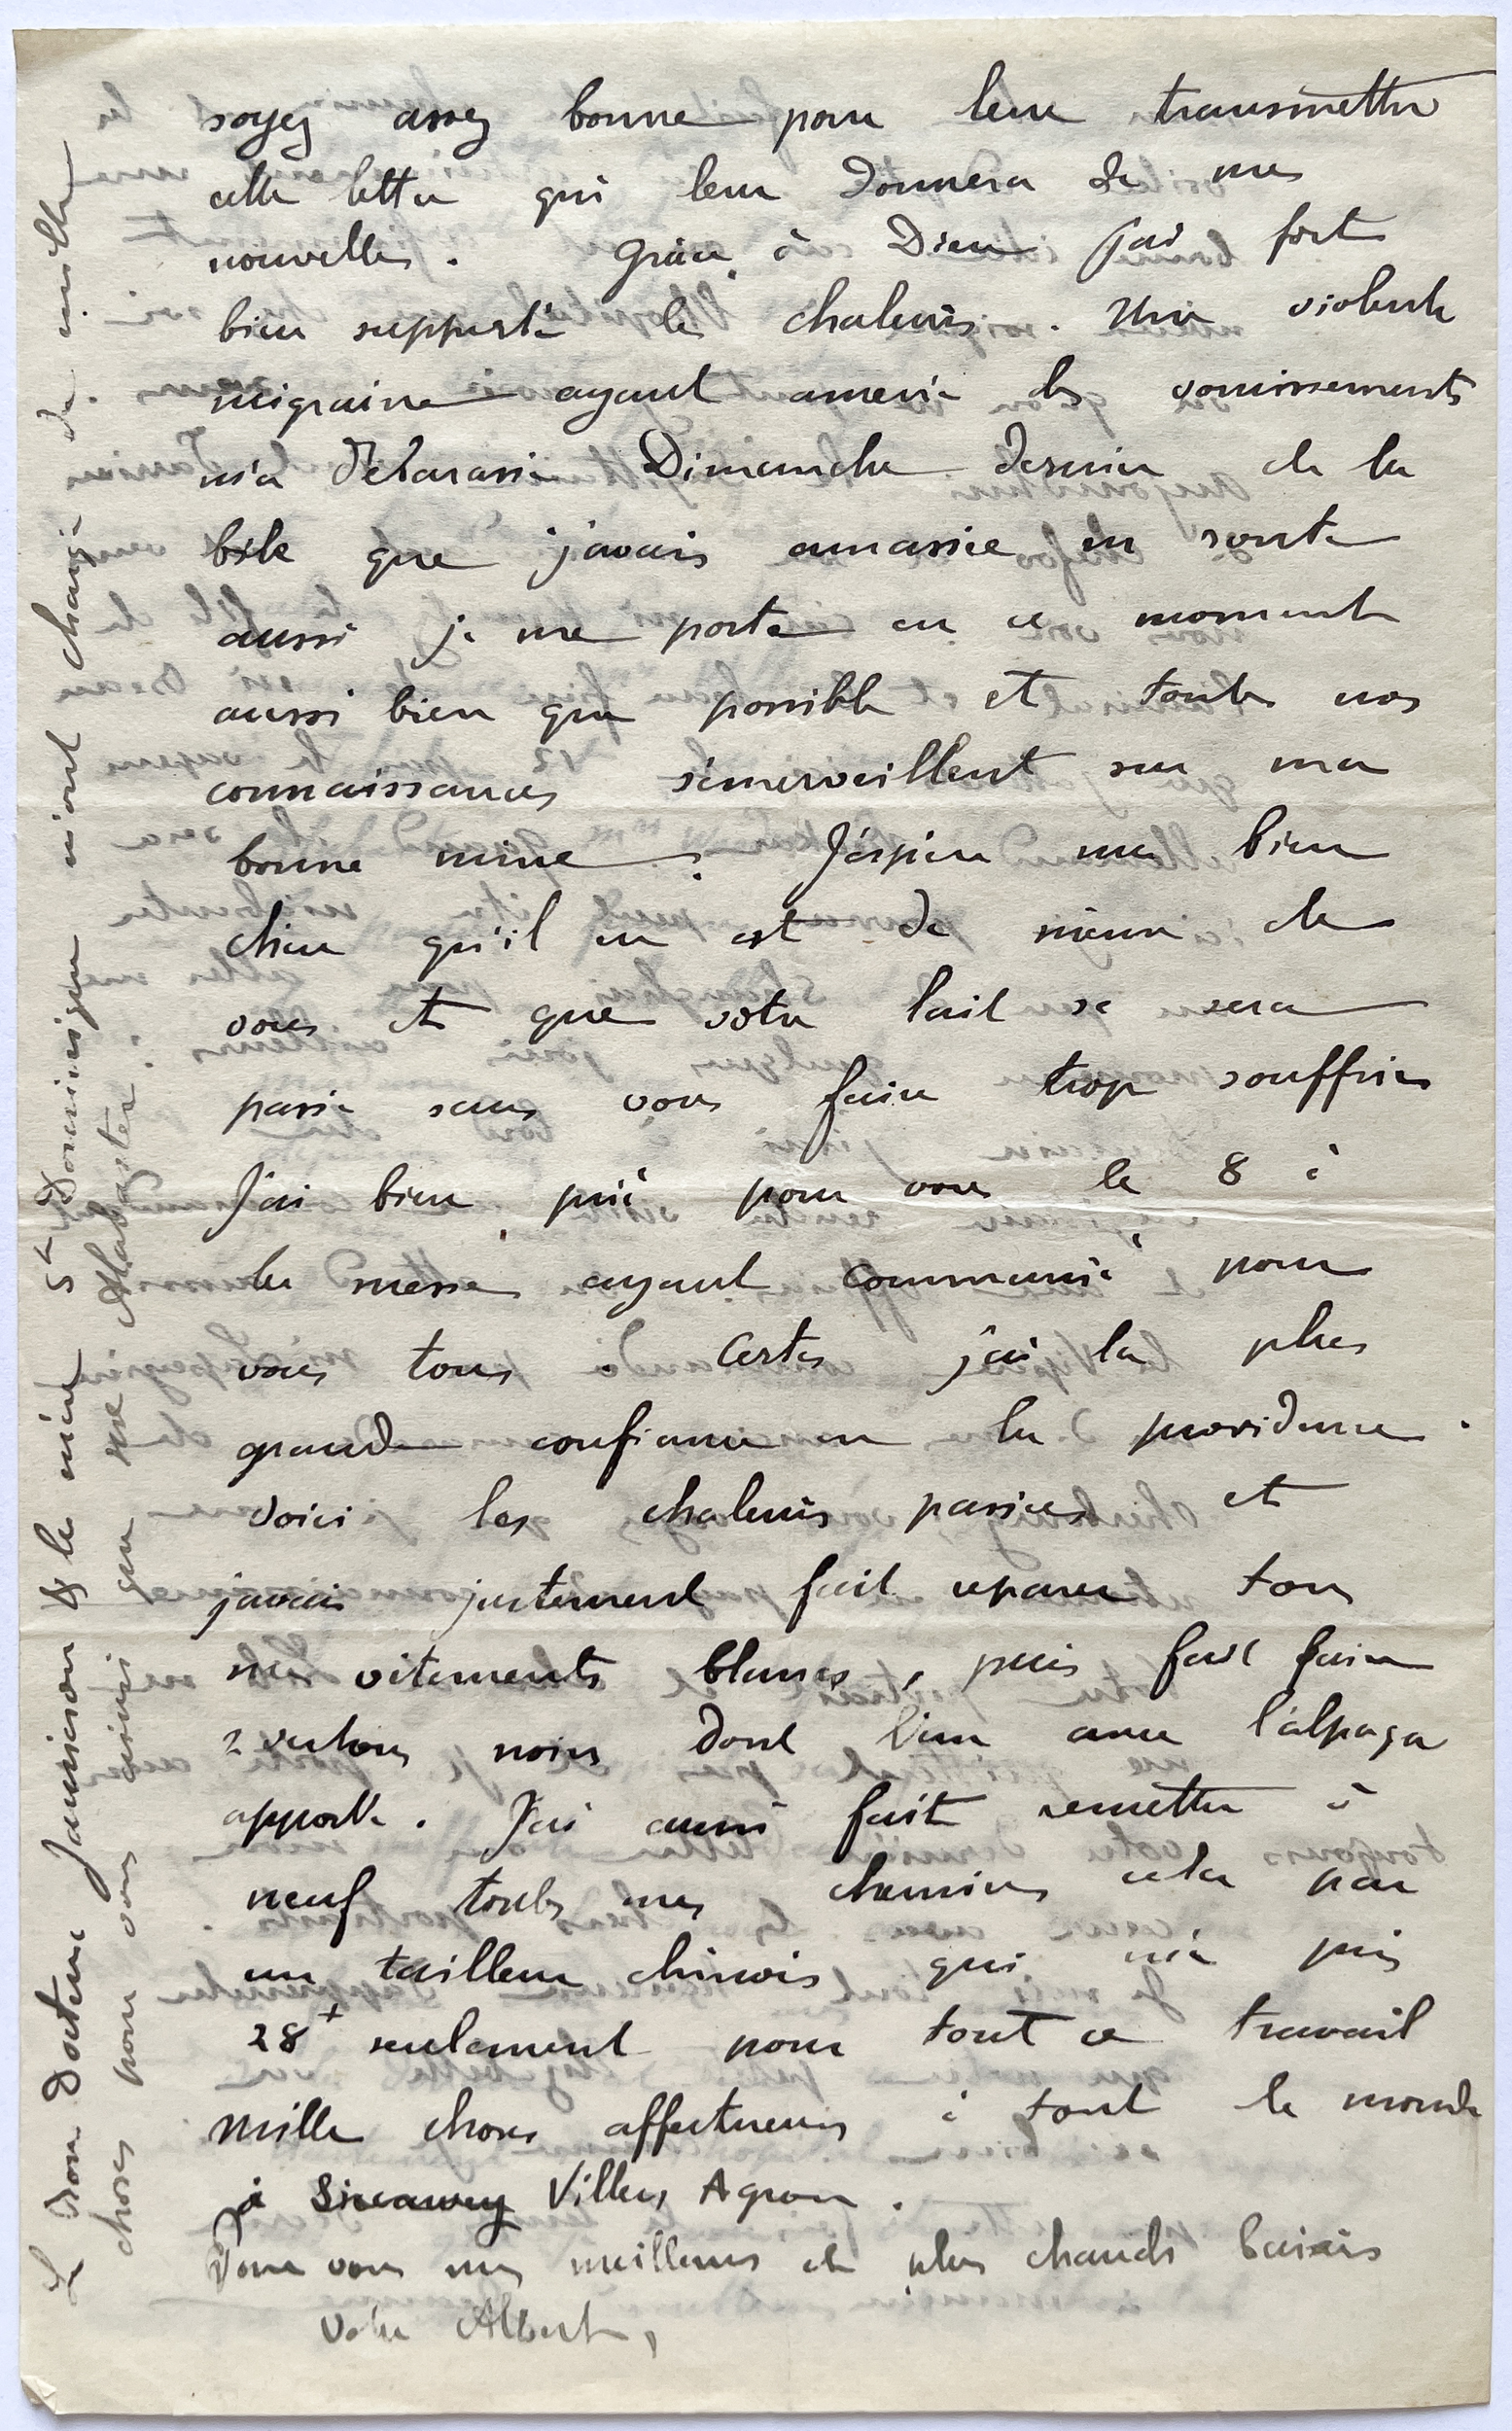 soyez assez bonne pour leur transmettre
cette lettre qui leur donnera de mes
nouvelles. Grâce à Dieu j'ai fort
bien supporté les chaleurs. Une violente
migraine ayant amené des vomissements
m'a débarassé Dimanche dernier de la
bile que j'avais amassée en route
aussi je me porte en ce moment
aussi bien que possible et toutes nos
connaissances s'émerveillent sur ma
bonne mine. J'espère ma bien
chère qu'il en est de même de
vous et que votre lait se sera
passé sans vous faire trop souffrir
J'ai bien prié pour vous le 8 à
la messe ayant communié pour
vous tous. Certes j'ai la plus
grande confiance en la providence.
Voici les chaleurs passées et
j'avais justement fait réparer tous
mes vêtements blancs, puis fait faire
2 vestons noirs dont l'un avec l'alpaga
apporté. J'ai aussi fait remettre à
neuf toutes mes chemises cela par
un tailleur chinois qui m'a pris
28+ seulement pour tout ce travail
Mille choses affectueuses à tout le monde
à Villers Agron.
Pour vous mes meilleurs et plus chauds baisers
Votre Albert,
Le bon Docteur Jamieson & le mère St Dominique m'ont chargé de mille
choses pour vous ainsi que me Malabaster.